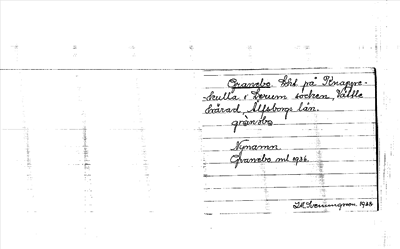 Granebo. Lht på Knapre-
-kulla i Lerum socken, Vättle
härad, Älfsborgs län.
grànebo
Nynamn
Granebo ml 1936.
1938